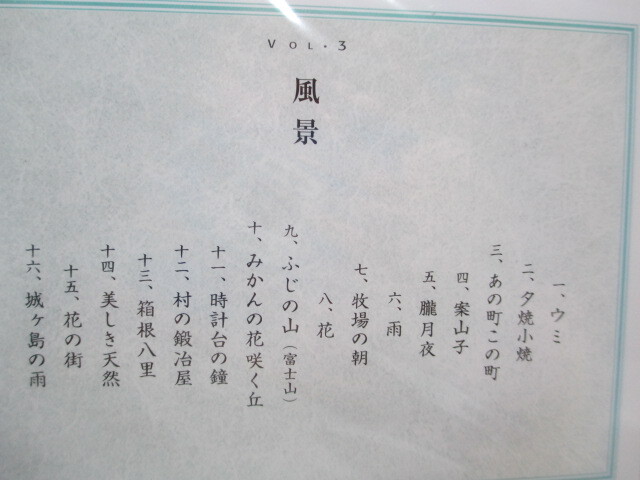 VOL・3
風景
一、ウミ
二、夕焼小焼
三、あの町この町
四、案山子
五、朧月夜
六、雨
七、牧場の朝
八、花
九、ふじの山（富士山）
十、みかんの花咲く丘
十一、時計台の鐘
十二、村の鍛冶屋
十三、箱根八里
十四、美しき天然
十五、花の街
十六、城ヶ島の雨